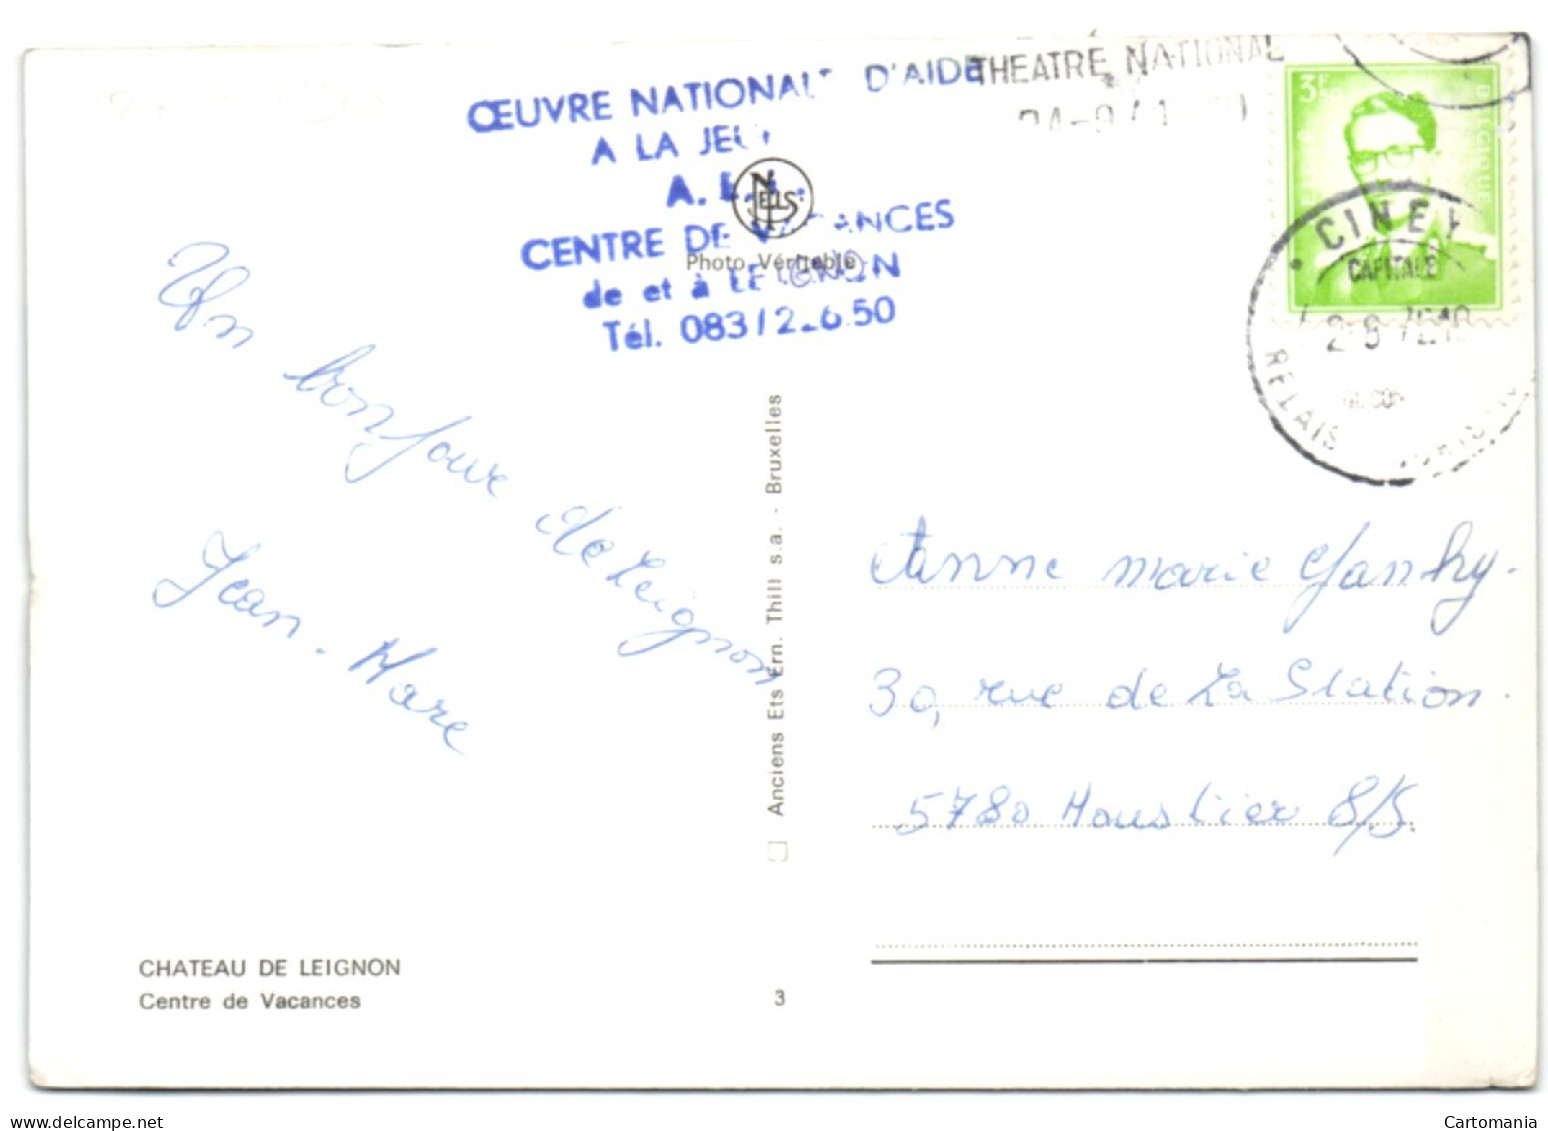 ŒUVRE NATIONAL D'AIDE
A LA
A.
CENTRE DE VACANCES
de et à LEIGNON
Tél. 083/226.50
THEATRE NATIONAL
NELS
Photo Véritable
3F50
BELGIQUE
CINEY
CAPITALE
RELAIS
Un bonjour de Leignon
Jean-Marc
Anciens Ets Ern. Thill s.a. - Bruxelles
Anne marie
30, rue de La Station.
5780 Moustier S/S.
CHATEAU DE LEIGNON
Centre de Vacances
3
Cartomania
www.delcampe.net